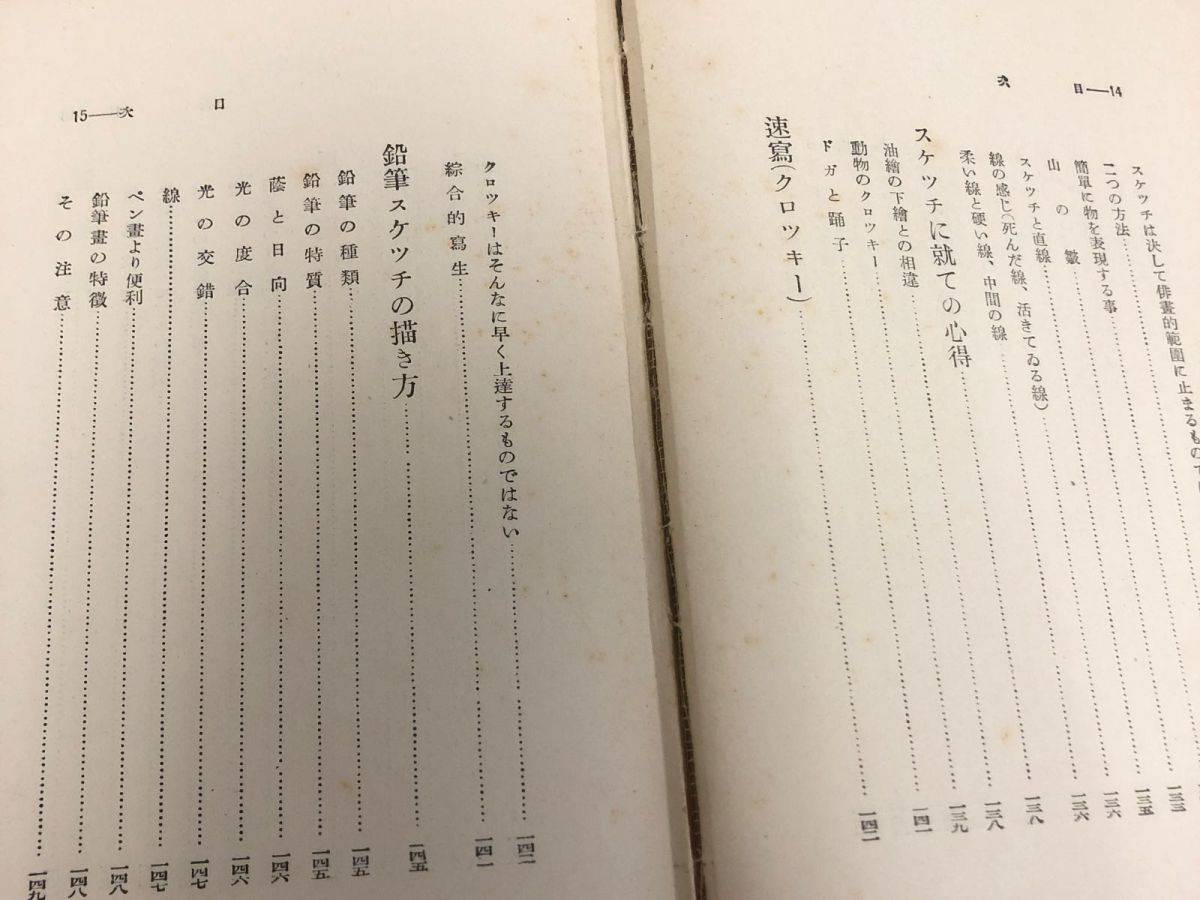 目——14
次
スケツチは決して俳畫的範圍に止まるもので
二つの方法
簡單に物を表現する事
山の皺 一三三
スケツチと直線 一三五
線の感じ(死んだ線、活きてゐる線) 一三六
柔い線と硬い線、中間の線 一三六
スケツチに就ての心得 一三八
油繪の下繪との相違 一三八
動物のクロツキー 一三九
ドガと踊子 一四一
速寫(クロツキー) 一四二
目
15——次
クロツキーはそんなに早く上達するものではない 一四二
綜合的寫生 一四二
鉛筆スケツチの描き方 一四五
鉛筆の種類 一四五
鉛筆の特質 一四五
蔭と日向 一四六
光の度合 一四六
光の交錯 一四七
線 一四七
ペン畫より便利 一四八
鉛筆畫の特徴 一四八
その注意 一四九